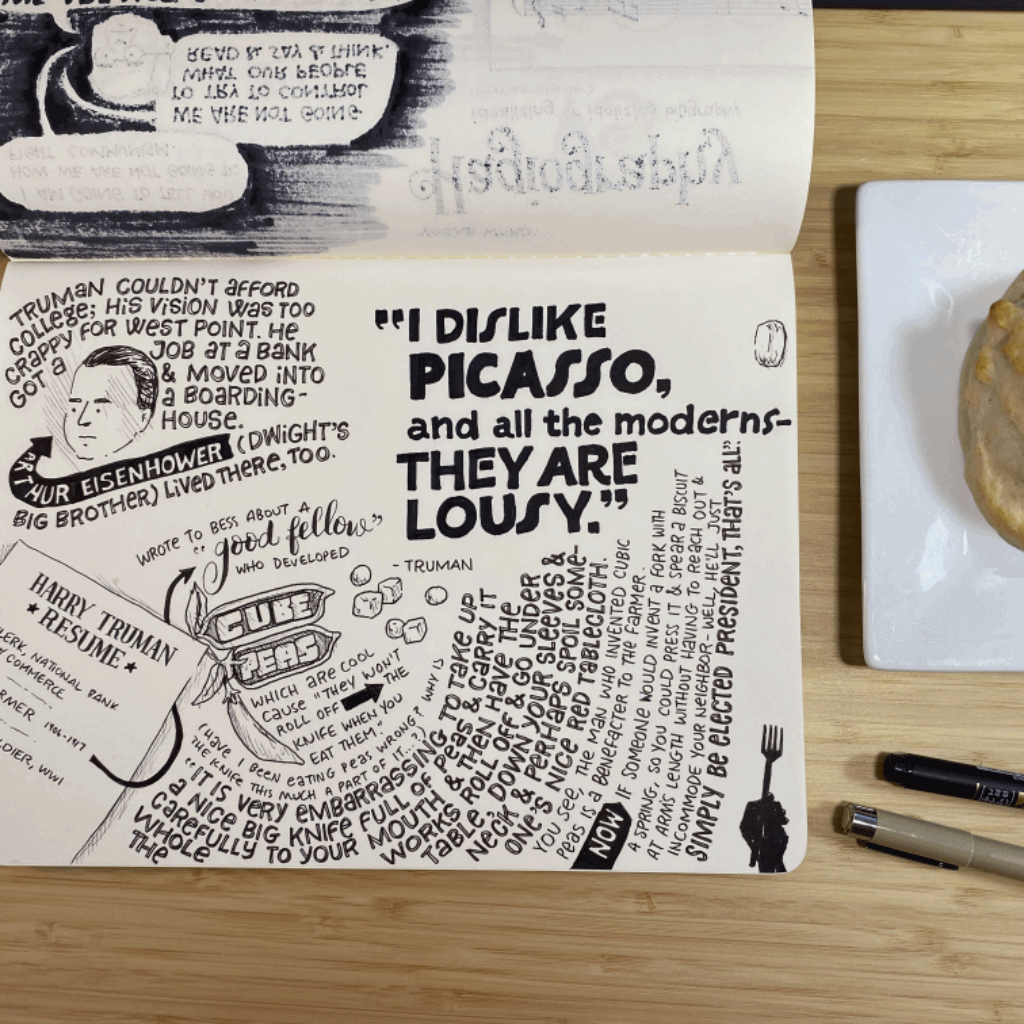 WE ARE NOT GOING
TO TRY TO CONTROL
WHAT OUR PEOPLE
READ & SAY & THINK.
I AM GOING TO TELL YOU
HOW WE ARE NOT GOING TO
FIGHT COMMUNISM.
VOCAB WORD:
Hagiography
idealizing or idolizing biography
TRUMAN COULDN'T AFFORD
COLLEGE; HIS VISION WAS TOO
CRAPPY FOR WEST POINT. HE
GOT A JOB AT A BANK
& MOVED INTO
A BOARDING-
HOUSE.
ARTHUR EISENHOWER (DWIGHT'S
BIG BROTHER) LIVED THERE, TOO.
"I DISLIKE
PICASSO,
and all the moderns-
THEY ARE
LOUSY."
- TRUMAN
WROTE TO BESS ABOUT A
"good fellow"
WHO DEVELOPED
CUBE
PEAS
WHICH ARE COOL
CAUSE "THEY WON'T
ROLL OFF THE
KNIFE WHEN YOU
EAT THEM."
(HAVE I BEEN EATING PEAS WRONG? WHY IS
THE KNIFE THIS MUCH A PART OF IT...?)
HARRY TRUMAN
RESUME
CLERK, NATIONAL BANK
OF COMMERCE
FARMER 1906-1917
SOLDIER, WWI
"IT IS VERY EMBARRASSING TO TAKE UP
A NICE BIG KNIFE FULL OF PEAS & CARRY IT
CAREFULLY TO YOUR MOUTH & THEN HAVE THE
WHOLE WORKS ROLL OFF & GO UNDER
THE TABLE, DOWN YOUR SLEEVES &
NECK & PERHAPS SPOIL SOME-
ONE'S NICE RED TABLECLOTH.
YOU SEE, THE MAN WHO INVENTED CUBIC
PEAS IS A BENEFACTER TO THE FARMER.
NOW IF SOMEONE WOULD INVENT A FORK WITH
A SPRING, SO YOU COULD PRESS IT & SPEAR A BISCUIT
AT ARMS LENGTH WITHOUT HAVING TO REACH OUT &
INCOMMODE YOUR NEIGHBOR - WELL, HE'LL JUST
SIMPLY BE ELECTED PRESIDENT, THAT'S ALL".